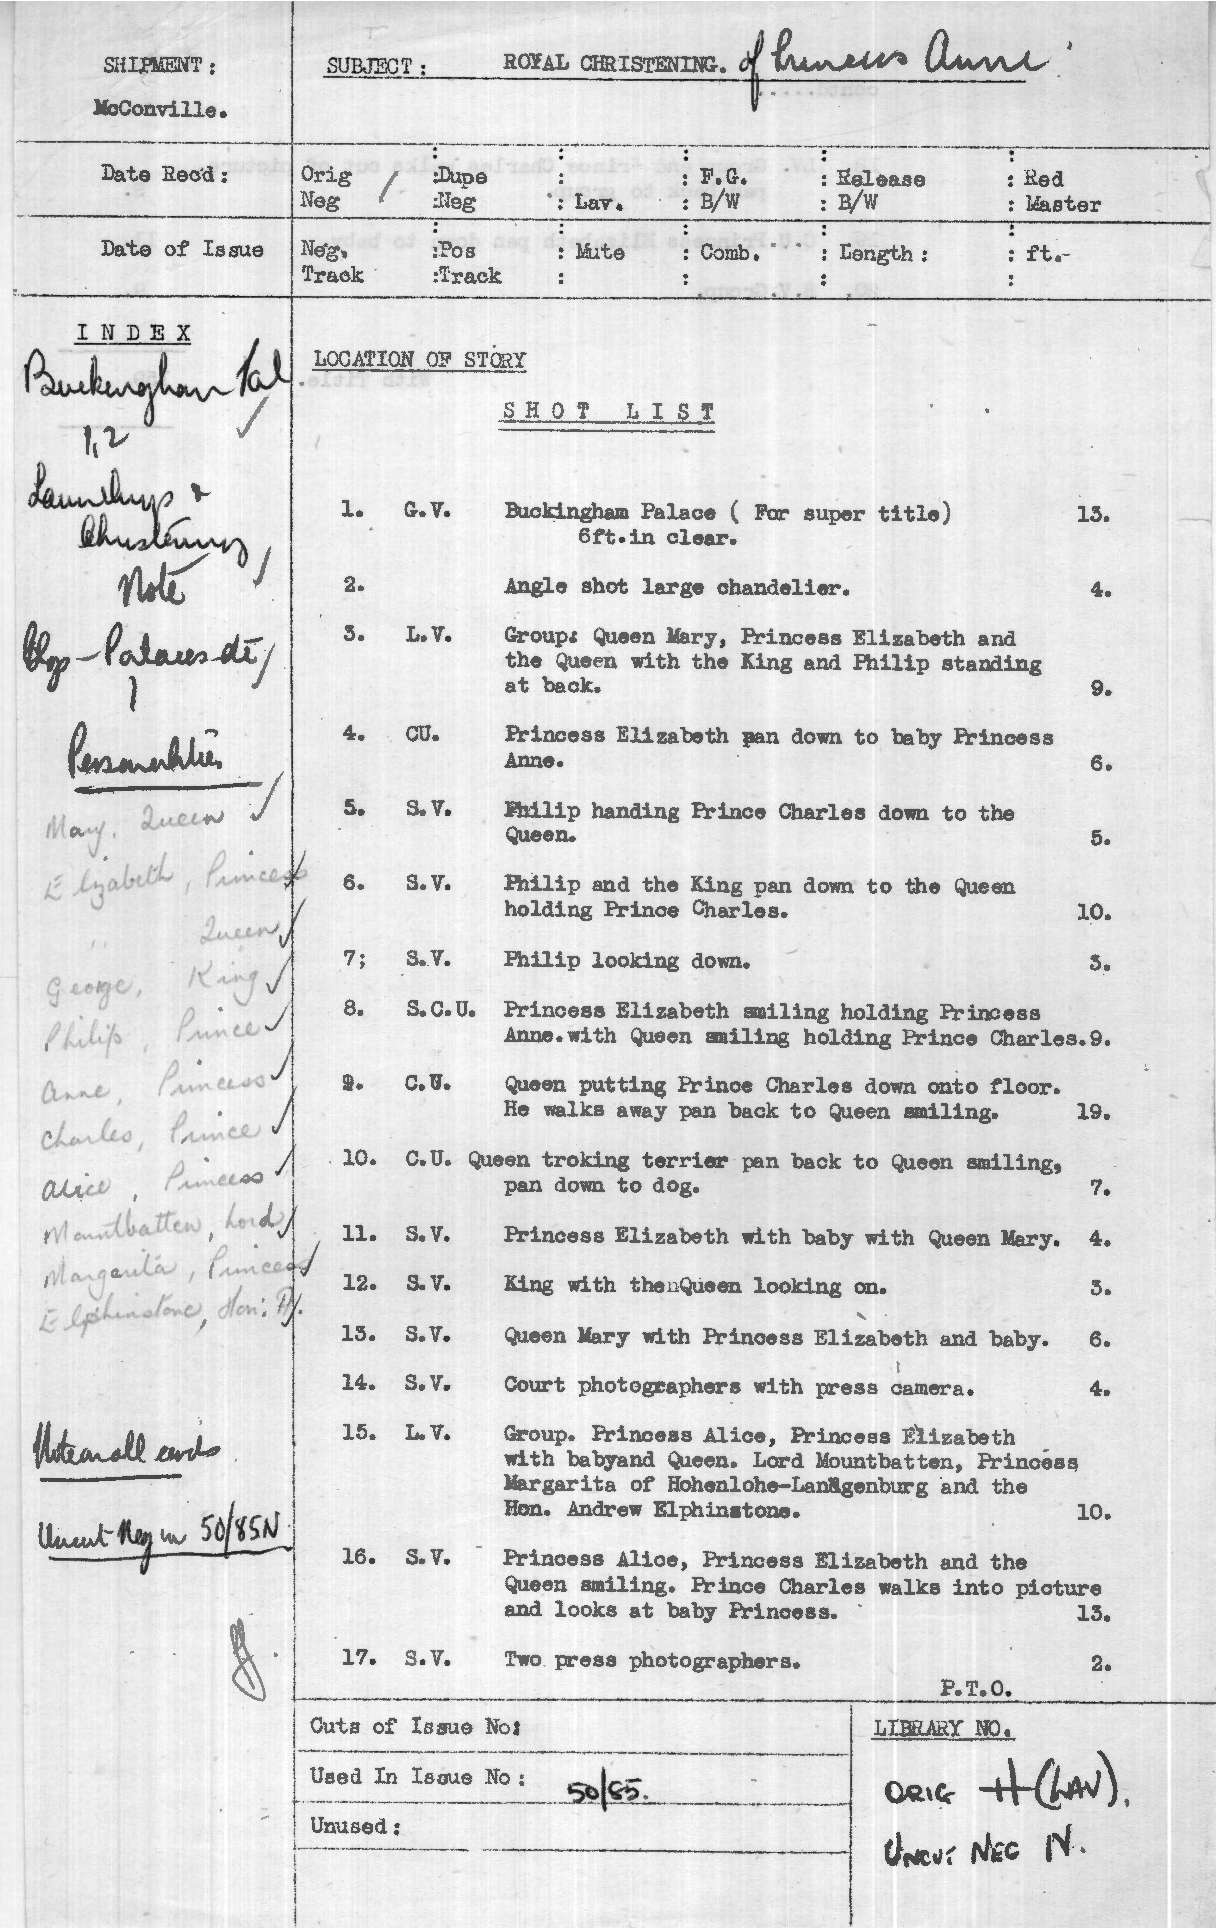 SHIPMENT:
McConville.
SUBJECT: ROYAL CHRISTENING. of Princess Anne
Date Recd: Orig / :Dupe : : F.G. : Release : Red
Neg :Neg : Lav. : B/W : B/W : Master
Date of Issue Neg, :Pos : Mute : Comb. : Length: : ft.-
Track :Track : : : :
INDEX
Buckingham Pal
1,2
Launchings &
Christenings
Note
Palaces
1
Personalities
Mary, Queen
Elizabeth, Princess
" Queen
George, King
Philip, Prince
Anne, Princess
Charles, Prince
Alice, Princess
Mountbatten, Lord
Margarita, Princess
Elphinstone, Hon:
Note on all cards
Uncut Neg in 50/85N
LOCATION OF STORY
SHOT LIST
1. G.V. Buckingham Palace ( For super title) 13.
6ft.in clear.
2. Angle shot large chandelier. 4.
3. L.V. Group: Queen Mary, Princess Elizabeth and
the Queen with the King and Philip standing
at back. 9.
4. CU. Princess Elizabeth pan down to baby Princess
Anne. 6.
5. S.V. Philip handing Prince Charles down to the
Queen. 5.
6. S.V. Philip and the King pan down to the Queen
holding Prince Charles. 10.
7; S.V. Philip looking down. 3.
8. S.C.U. Princess Elizabeth smiling holding Princess
Anne.with Queen smiling holding Prince Charles.9.
9. C.U. Queen putting Prince Charles down onto floor.
He walks away pan back to Queen smiling. 19.
10. C.U. Queen troking terrier pan back to Queen smiling,
pan down to dog. 7.
11. S.V. Princess Elizabeth with baby with Queen Mary. 4.
12. S.V. King with thenQueen looking on. 3.
13. S.V. Queen Mary with Princess Elizabeth and baby. 6.
14. S.V. Court photographers with press camera. 4.
15. L.V. Group. Princess Alice, Princess Elizabeth
with babyand Queen. Lord Mountbatten, Princess
Margarita of Hohenlohe-Langenburg and the
Hon. Andrew Elphinstone. 10.
16. S.V. Princess Alice, Princess Elizabeth and the
Queen smiling. Prince Charles walks into picture
and looks at baby Princess. 13.
17. S.V. Two press photographers. 2.
P.T.O.
Cuts of Issue No:
Used In Issue No: 50/85.
Unused:
LIBRARY NO.
ORIG H (LAV).
UNCUT NEG N.